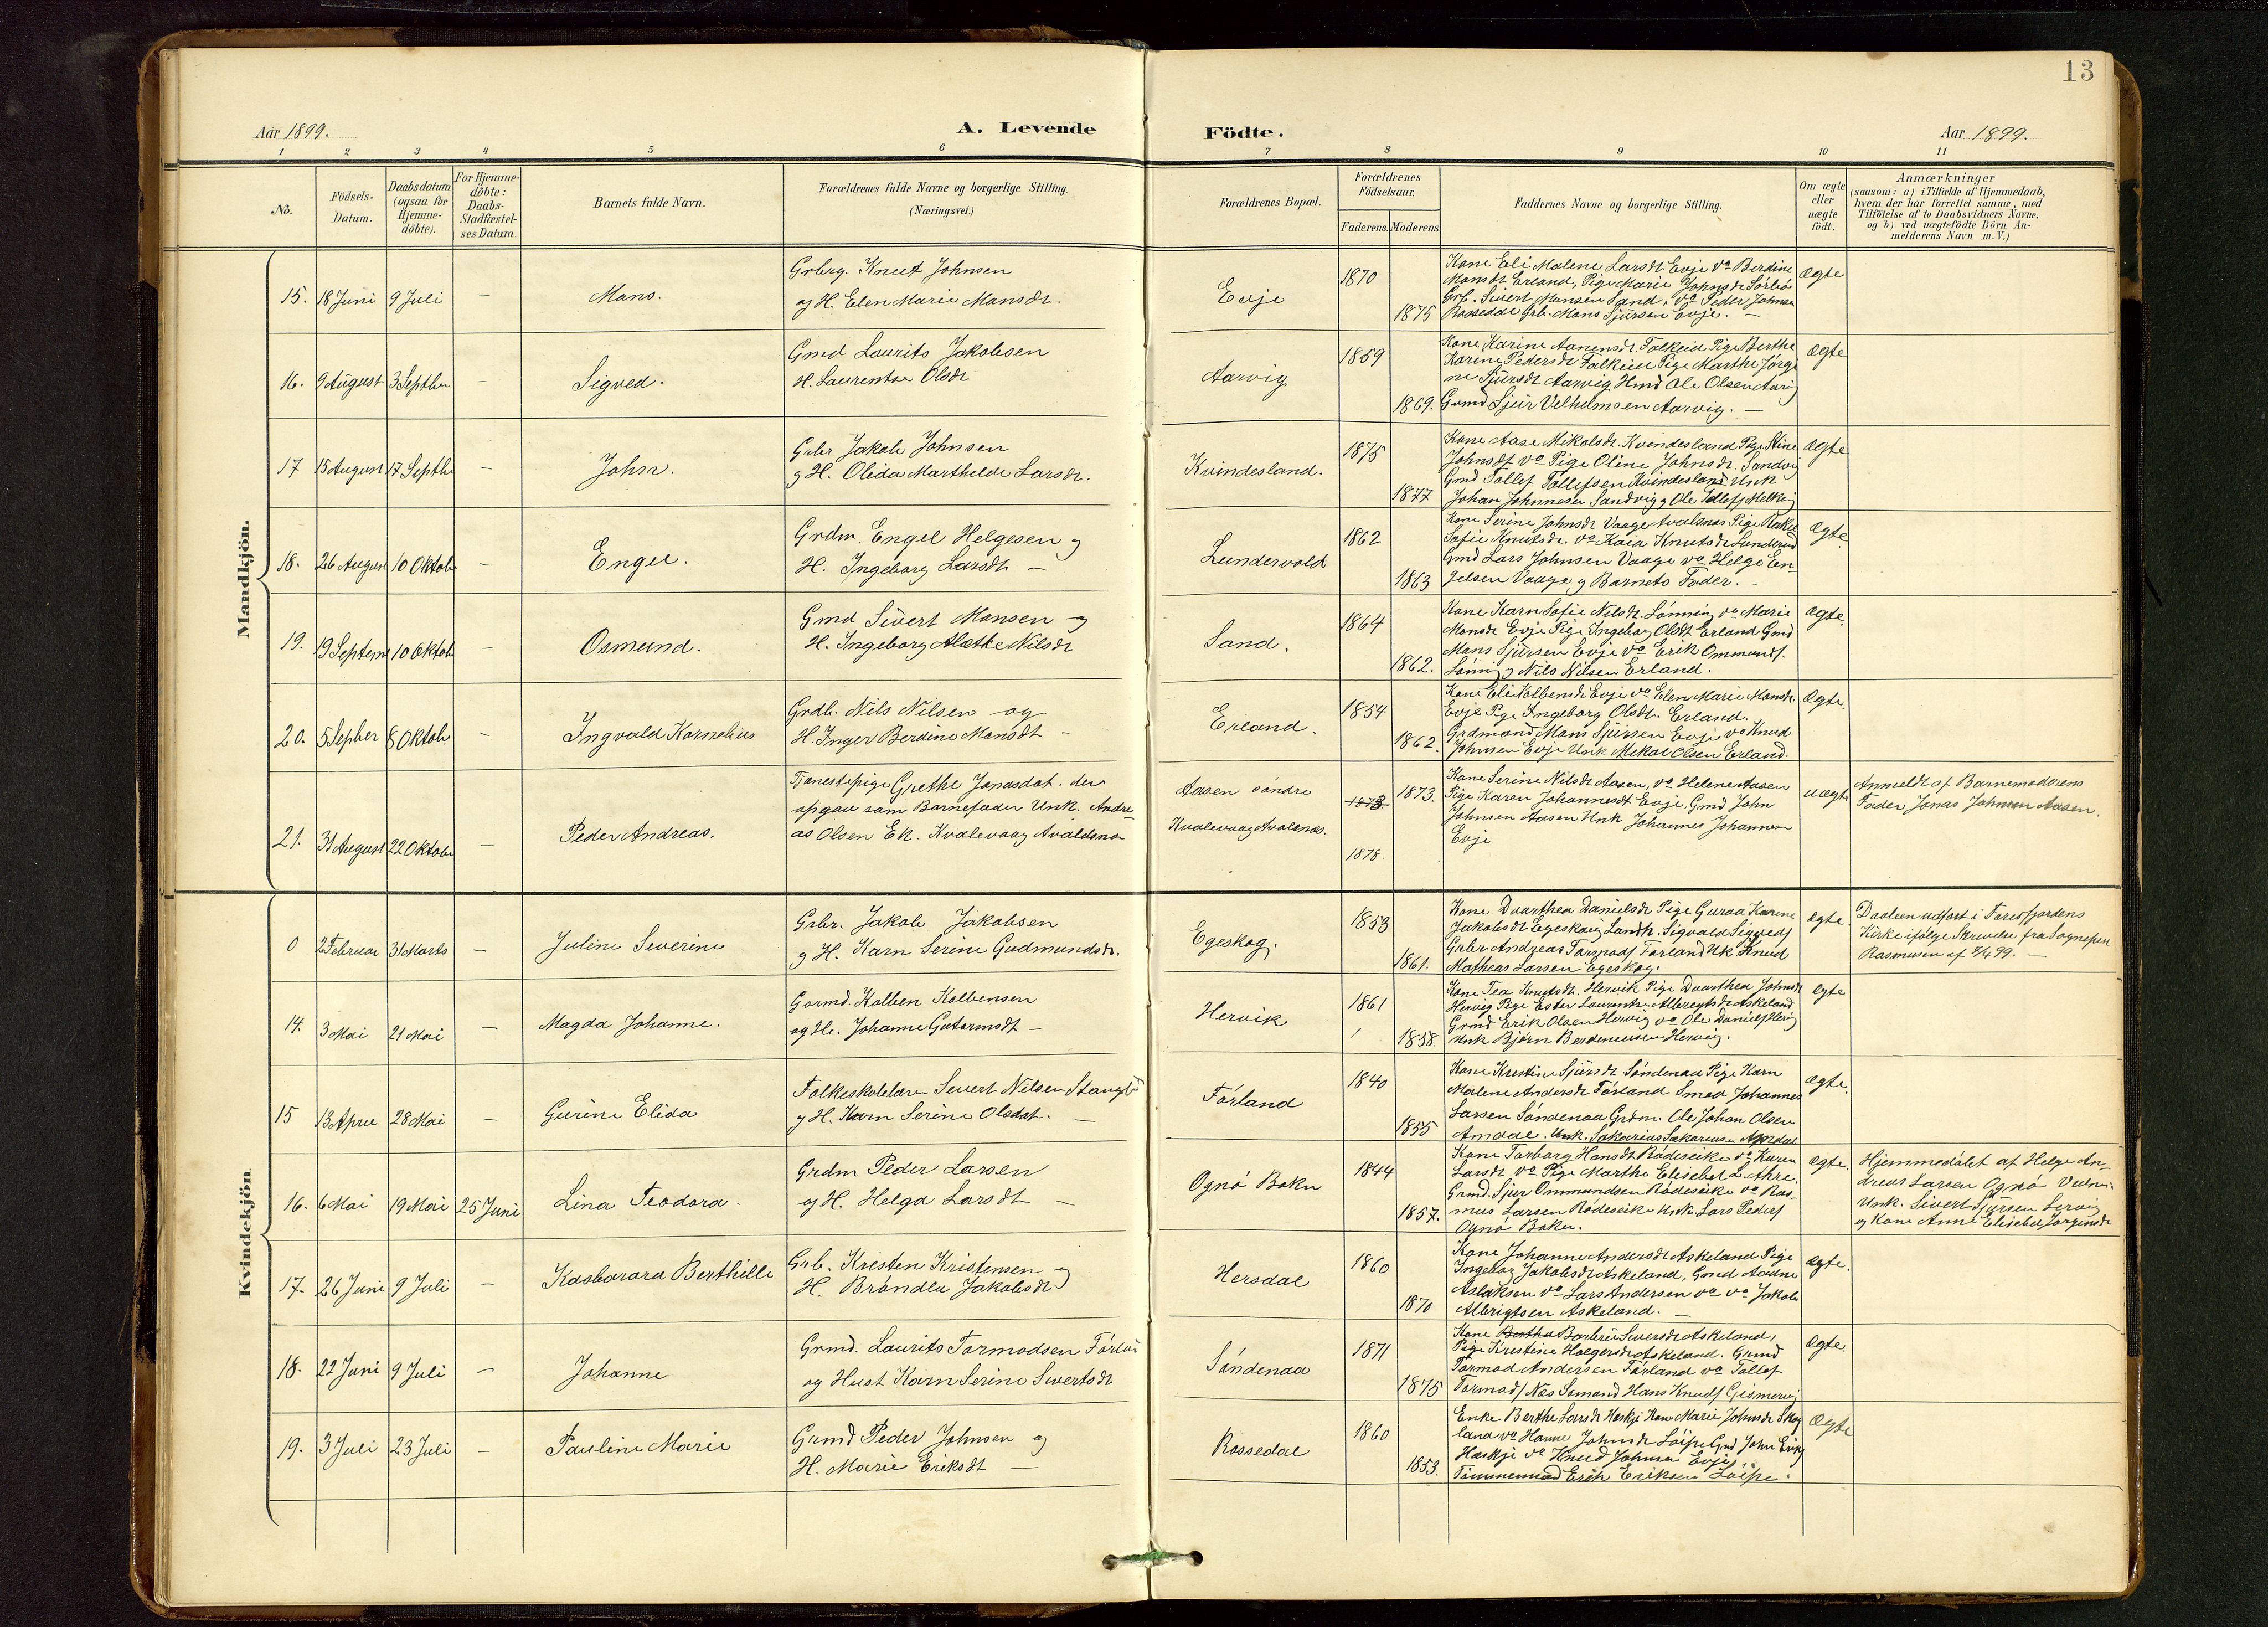 13
Aar 1899.
A. Levende Födte.
Aar 1899.
1 2 3 4 5 6 7 8 9 10 11
No.
Födsels-
Datum.
Daabsdatum
(ogsaa for
Hjemme-
döbte).
For Hjemme-
döbte:
Daabs-
Stadfæstel-
ses Datum.
Barnets fulde Navn.
Forældrenes fulde Navne og borgerlige Stilling.
(Næringsvei.)
Forældrenes Bopæl.
Forældrenes
Födselsaar.
Faderens. Moderens.
Faddernes Navne og borgerlige Stilling.
Om ægte
eller
uægte
födt.
Anmærkninger
(saasom: a) i Tilfælde af Hjemmedaab,
hvem der har forrettet samme, med
Tilföielse af to Daabsvidners Navne.
og b) ved uægtefödte Börn An-
melderens Navn m. V.)
Mandkjön.
15. 18 Juni 9 Juli - Mans.
Grbrg. Knut Johnsen
og H. Elen Marie Mansdt.
Evje
1870
1875
Kone Eli Malene Larsdt Evje do Berdine
Mansdt Erland, Pige Marie Johnsdt Sörbö
Grb. Sivert Mansen Sand, do Peder Johnsen
Rossedal Grb. Mans Sjursen Evje. -
Ægte
16. 9 August 3 Septbr - Sigved.
Gmd Laurits Jakobsen
H. Laurentse Olsdt
Aarvig
1859
1869.
Kone Karine Aanensdt. Falkeid Pige Berthe
Karene Pedersdt Falkeid Pige Marthe Jörgi
ne Sjursdt Aarvig Hmd Ole Olsen Aarvig
Grmd Sjur Velhelmsen Aarvig. -
Ægte
17 15 August 17 Septbr - John.
Grbr Jakob Johnsen
og H. Olida Marthilde Larsdt.
Kvindesland.
1875
1877
Kone Aase Mikalsdt. Kvindesland Pige Stine
Johnsdt do Pige Oline Johnsdt. Sandvig
Gmd Tollef Tollefsen Kvindesland Unk
Johan Johnnesen Sandvig og Ole Tollefs
Ægte
18. 26 August 10 Oktobr - Engel.
Grdm. Engel Helgesen og
H. Ingeborg Larsdt -
Lundervold
1862
1863
Kone Serine Johnsdt Vaage Avalsnes Pige Rakel
Sofie Knutsdt. do Kaia Knutsdt
Gmd Lars Johnsen Vaage do Helge En-
gelsen Vaage og Barnets Fader. -
Ægte
19. 19 Septemb 10 Oktob - Osmund.
Gmd Sivert Mansen og
H. Ingeborg Alethe Nilsdt
Sand.
1864
1862.
Kone Karn Sofie Nilsdt. Lönning do Marie
Mansdt Evje Pige Ingeborg Olsdt Erland Gmd
Mans Sjursen Evje do Erik Ommunds.
Lönning og Nils Nilsen Erland.
Ægte.
20. 5 Septber 8 Oktob - Ingvald Kornelius
Grdb. Nils Nilsen og
H. Inger Berdine Mansdt -
Erland.
1854
1862.
Kone Eli Kolbensdt Evje do Elen Marie Mansdt
Evje Pige Ingeborg Olsdt. Erland.
Grdmand Mans Sjursen Evje do Knud
Johnsen Evje Unk Mikal Olsen Erland.
Ægte.
21. 31 August 22 Oktobr - Peder Andreas.
Tjenestepige Grethe Jonasdat. der
opgav som Barnefader Unk. Andre
as Olsen Ek. Kvalevaag Avaldsnes
Aasen söndre
Kvalevaag Avalsnes.
1873.
1878.
Kone Serine Nilsdt Aasen, do Helene Aasen
Pige Karen Johannesdt Evje, Gmd John
Johnsen Aasen Unk Johannes Johannesen
Evje
uægte
Anmeldt af Barnemoderens
Fader Jonas Johnsen Aasen.
Kvindekjön
0 2 Februar 31 Marts - Juline Severine
Grbr. Jakob Jakobsen
og H. Karn Serine Gudmundsdt.
Egeskog.
1853
1861.
Kone Doarthea Danielsdt Pige Guroa Karene
Jakobsdt Egeskaug Landh. Sigvald Sigveds
Grbr Andreas Tormods Forland Uk Knud
Matheas Larsen Egeskog.
Ægte.
Daaben udfört i Toresfjordens
Kirke ifölge Skrivelse fra Sogneprest
Rasmusen af 4/4 99. -
14. 3 Mai 21 Mai - Magda Johanne.
Garmd. Kolben Kolbensen
og H. Johanne Gutormsdt -
Hervik
1861
1858.
Kone Tea Knutsdt. Hervik Pige Doarthea Johnsdt
Hervig Pige Ester Laurentse Albregtsdt Askeland
Grmd Erik Olsen Hervig do Ole Daniels Hervig
Unk Björn Berdinusen Hervig.
Ægte
15 13 April 28 Mai - Gurine Elida
Folkeskolelærer Sivert Nilsen Stangeland
og H. Karn Serine Olsdat. -
Förland
1840
1855
Kone Krestine Sjursdt Söndenaa Pige Karn
Malene Andersdt Förland Smed Johannes
Larsen Söndenaa Grdm. Ole Johan Olsen
Amdal. Unk. Sakarias Sakariasen Amdal
Ægte.
16. 6 Mai 19 Mai 25 Juni Lina Teodora.
Grdm Peder Larsen
og H. Helga Larsdt -
Ognö Bokn
1844
1857.
Kone Torborg Hansdt Rödeseike do Karen
Larsdt do Pige Marthe Elisebet L. Athre.
Grmd. Sjur Ommundsen Rödeseike do Ras-
mus Larsen Rödeseike Unk. Lars Peders
Ognö Bokn.
Ægte.
Hjemmedöbt af Helge An-
dreas Larsen Ognö Vidn:
Unk. Sivert Sjursen
og Kone Anne Elisebet Jörginsdt
17. 26 Juni 9 Juli - Kasbarara Berthille
Grb. Kristen Kristensen og
H. Bröndla Jakobsdt
Hersdal
1860
1870
Kone Johanne Andersdt Askeland Pige
Ingeborg Jakobsdt Askeland, Gmd Aadne
Aslaksen do Lars Andersen do do Jakob
Albrigtsen Askeland. -
Ægte.
18. 22 Juni 9 Juli - Johanne
Grmd. Laurits Tormodsen Förland
og Hust Karn Serine Sivertsdt
Söndenaa
1871
1875
Kone Bertha Barbru Siversdt Askeland,
Pige Kristine Holgersdt Askeland. Grmd
Tormod Andersen Förland do Tollef
Tormods Næs Sömand Hans Knuds Gismervig
Ægte.
19. 3 Juli 23 Juli - Pauline Marie
Grmd Peder Johnsen og
H. Marie Eriksdt -
Rossedal
1860
1853.
Enke Berthe Larsdt Heskje Kone Marie Johnsdt Skog
land do Hanne Johnsdt Löipe Gmd John Erikj
Heskje do Knud Johnsen Evje
Tömmermand Erik Eriksen Löipe.
Ægte